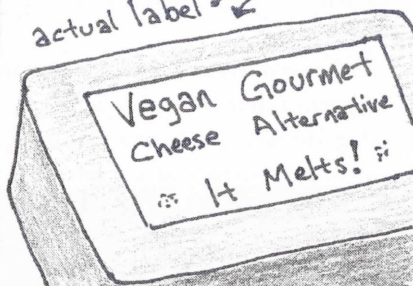 actual label
Vegan Gourmet
Cheese Alternative
It Melts!